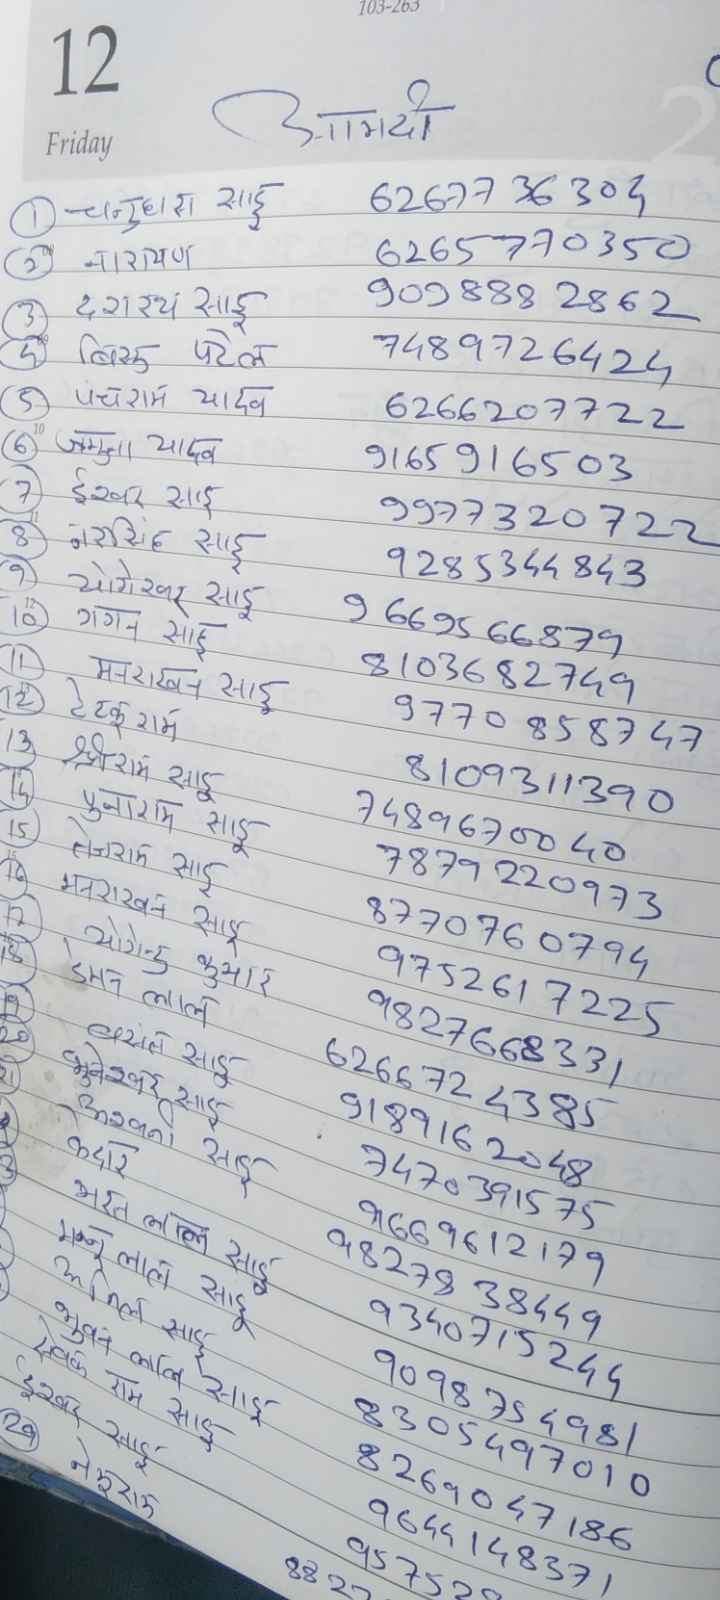 103-263
12
Friday
आमदी
① चन्द्रहास साहू 6267736304
② नारायण 6265770350
③ दशरथ साहू 9098882862
④ बिरू पटेल 7489726424
⑤ पंचराम यादव 6266207722
⑥ जमुना यादव 9165916503
⑦ ईश्वर साहू 9977320722
⑧ नरसिंह साहू 9285344843
⑨ योगेश्वर साहू 9669566879
⑩ गगन साहू 8103682749
⑪ मनराखन साहू 9770858747
⑫ टेटकू राम 8109311390
⑬ श्रीराम साहू 7489670040
⑭ पुनाराम साहू 7879220973
⑮ तेजराम साहू 8770760794
⑯ मनराखन साहू 9752617225
⑰ योगेन्द्र कुमार 9827668331
⑱ डोमन लाल 6266724385
बसंत साहू 9189162048
20 भुनेश्वर साहू 7470391575
21 अश्वनी साहू 9669612179
केदार 9827838449
भरत लाल साहू 9340715244
मन्नू लाल साहू 9098754981
अनिल साहू 8305497010
भुवन लाल साहू 8269047186
सेवक राम साहू 9644148371
ईश्वर साहू 957520
29 नेकराम 8827